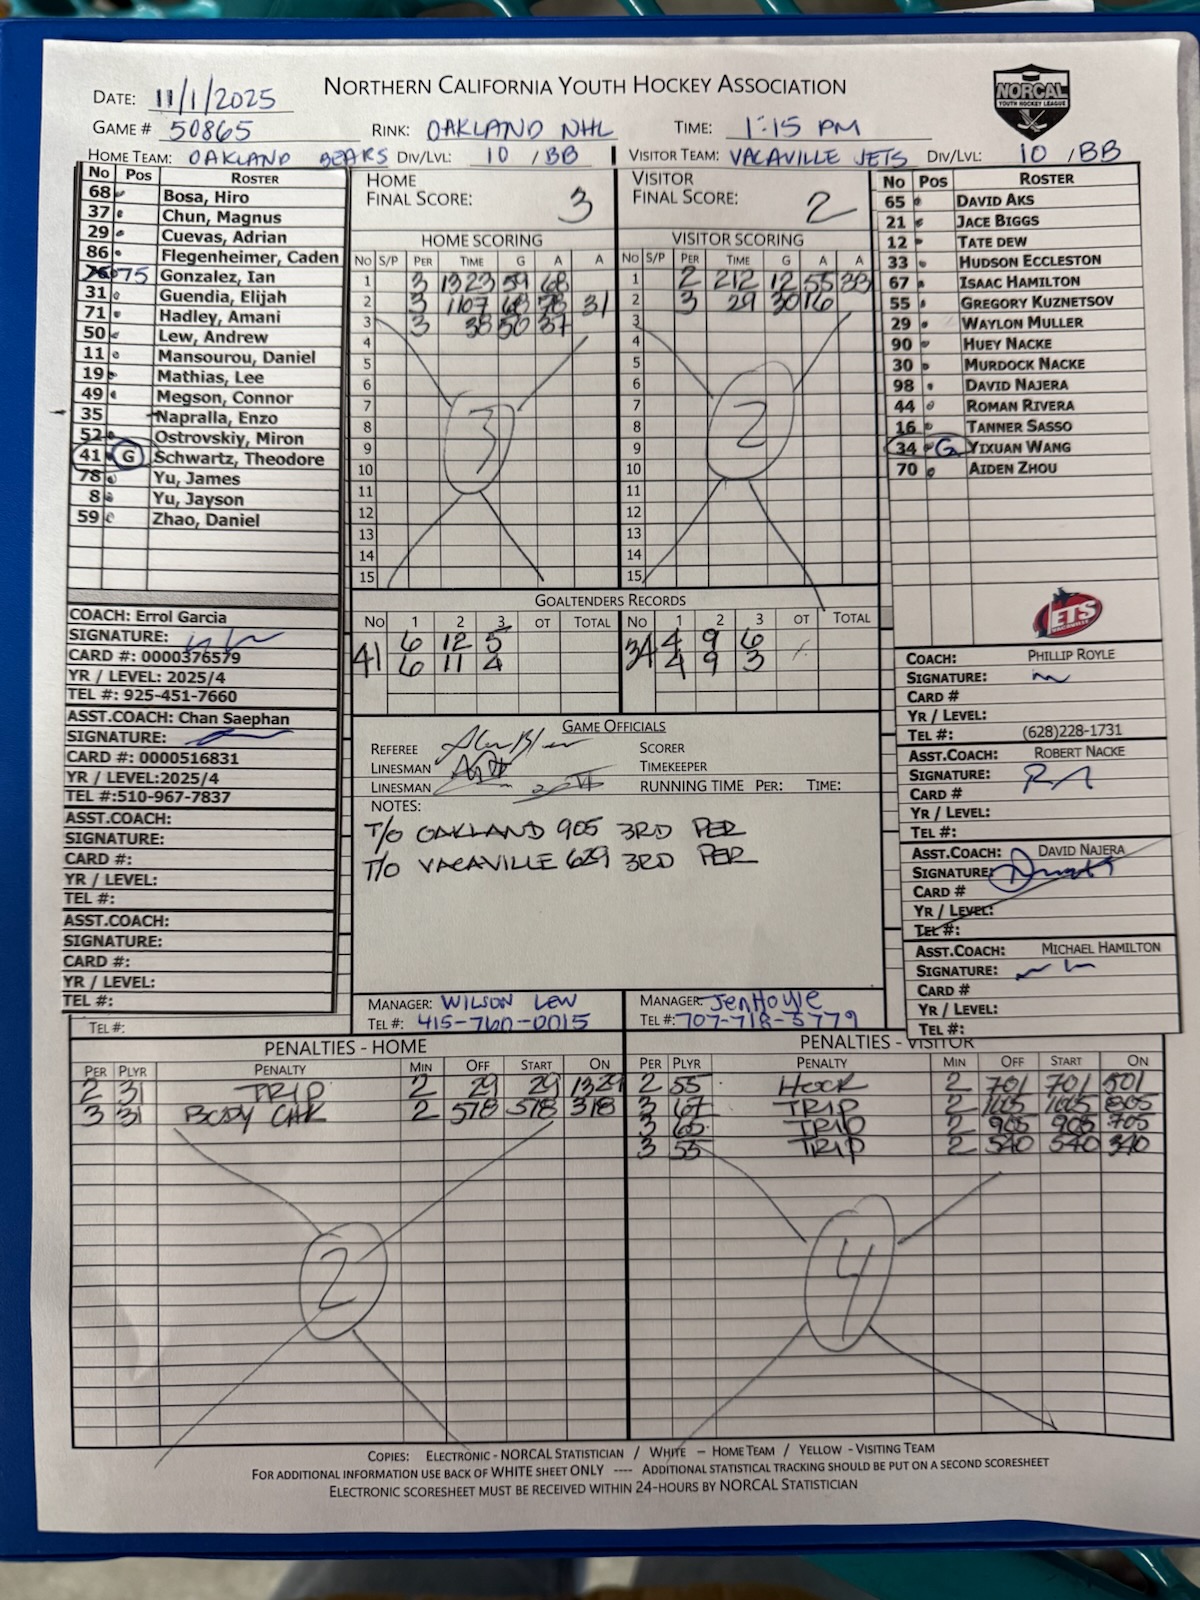 NORTHERN CALIFORNIA YOUTH HOCKEY ASSOCIATION
NORCAL
YOUTH HOCKEY LEAGUE
DATE: 11/1/2025
GAME # 50865 RINK: OAKLAND NHL TIME: 1:15 PM
HOME TEAM: OAKLAND BEARS DIV/LVL: 10 / BB VISITOR TEAM: VACAVILLE JETS DIV/LVL: 10 / BB
No Pos ROSTER
68 Bosa, Hiro
37 Chun, Magnus
29 Cuevas, Adrian
86 Flegenheimer, Caden
75 Gonzalez, Ian
31 Guendia, Elijah
71 Hadley, Amani
50 Lew, Andrew
11 Mansourou, Daniel
19 Mathias, Lee
49 Megson, Connor
35 Napralla, Enzo
52 Ostrovskiy, Miron
41 G Schwartz, Theodore
78 Yu, James
8 Yu, Jayson
59 Zhao, Daniel
COACH: Errol Garcia
SIGNATURE:
CARD #: 0000376579
YR / LEVEL: 2025/4
TEL #: 925-451-7660
ASST.COACH: Chan Saephan
SIGNATURE:
CARD #: 0000516831
YR / LEVEL:2025/4
TEL #:510-967-7837
ASST.COACH:
SIGNATURE:
CARD #:
YR / LEVEL:
TEL #:
ASST.COACH:
SIGNATURE:
CARD #:
YR / LEVEL:
TEL #:
TEL #:
HOME
FINAL SCORE: 3
HOME SCORING
NO S/P PER TIME G A A
1 3 1323 59 68
2 3 1107 68 78 31
3 3 38 50 37
4
5
6
7
8
9
10
11
12
13
14
15
3
VISITOR
FINAL SCORE: 2
VISITOR SCORING
NO S/P PER TIME G A A
1 2 212 12 55 33
2 3 29 30 16
3
4
5
6
7
8
9
10
11
12
13
14
15
2
GOALTENDERS RECORDS
NO 1 2 3 OT TOTAL NO 1 2 3 OT TOTAL
41 6 12 5 34 4 9 6
6 11 4 4 9 3
GAME OFFICIALS
REFEREE SCORER
LINESMAN TIMEKEEPER
LINESMAN RUNNING TIME PER: TIME:
NOTES:
T/O OAKLAND 905 3RD PER
T/O VACAVILLE 629 3RD PER
MANAGER: WILSON LEW MANAGER: Jen Hoyle
TEL #: 415-760-0015 TEL #: 707-718-5779
No Pos ROSTER
65 DAVID AKS
21 JACE BIGGS
12 TATE DEW
33 HUDSON ECCLESTON
67 ISAAC HAMILTON
55 GREGORY KUZNETSOV
29 WAYLON MULLER
90 HUEY NACKE
30 MURDOCK NACKE
98 DAVID NAJERA
44 ROMAN RIVERA
16 TANNER SASSO
34 G YIXUAN WANG
70 AIDEN ZHOU
JETS
VACAVILLE
COACH: PHILLIP ROYLE
SIGNATURE:
CARD #
YR / LEVEL:
TEL #: (628)228-1731
ASST.COACH: ROBERT NACKE
SIGNATURE:
CARD #
YR / LEVEL:
TEL #:
ASST.COACH: DAVID NAJERA
SIGNATURE:
CARD #
YR / LEVEL:
TEL #:
ASST.COACH: MICHAEL HAMILTON
SIGNATURE:
CARD #
YR / LEVEL:
TEL #:
PENALTIES - HOME
PER PLYR PENALTY MIN OFF START ON
2 31 TRIP 2 29 29 1329
3 31 BODY CHK 2 518 518 318
2
PENALTIES - VISITOR
PER PLYR PENALTY MIN OFF START ON
2 55 HOOK 2 701 701 501
3 67 TRIP 2 1005 1005 805
3 65 TRIP 2 905 905 705
3 55 TRIP 2 540 540 340
4
COPIES: ELECTRONIC - NORCAL STATISTICIAN / WHITE – HOME TEAM / YELLOW - VISITING TEAM
FOR ADDITIONAL INFORMATION USE BACK OF WHITE SHEET ONLY ---- ADDITIONAL STATISTICAL TRACKING SHOULD BE PUT ON A SECOND SCORESHEET
ELECTRONIC SCORESHEET MUST BE RECEIVED WITHIN 24-HOURS BY NORCAL STATISTICIAN